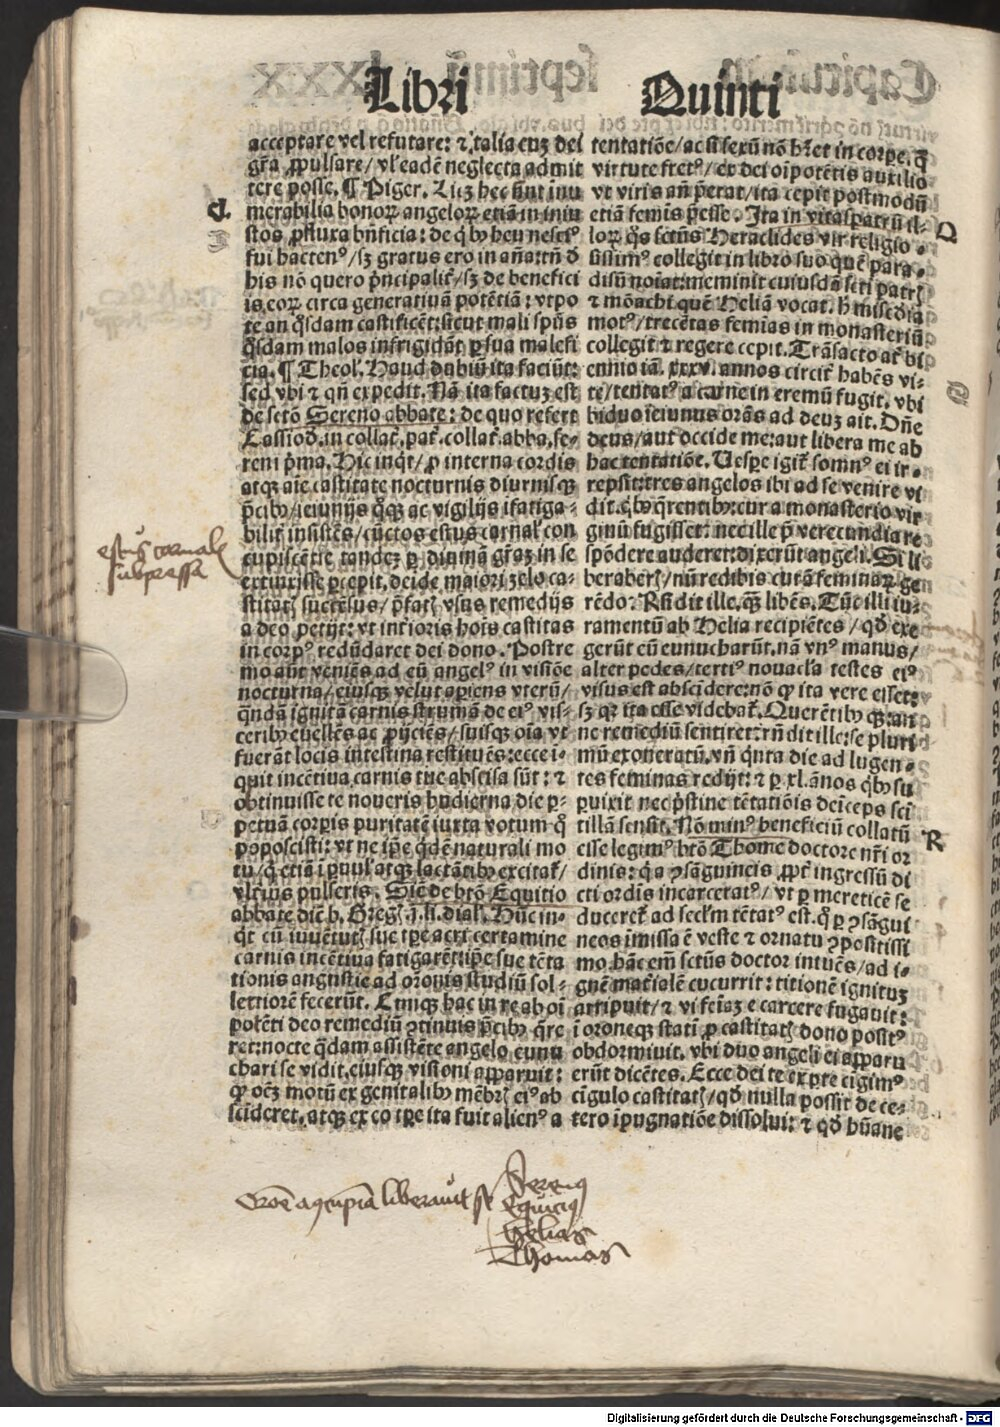 Libri Quinti
acceptare vel refutare: ⁊ talia euꝫ dei
gr̃a ꝓpulsare/ vl̓ eadē neglecta admit
tere posse. ¶ Piger. Licꝫ hec sint innu
merabilia bonoꝝ angeloꝝ etiā in iniu
stos ꝓfluxa bñficia: de qͥbꝰ heu nesciꝰ
fui hactenꝰ/ sꝫ gratus ero in añatn̄ ō
his nō quero pͥncipalit̓/ sꝫ de benefici
is eoꝝ circa generatiuā potētiā: vtpo
te an qͦsdam castificēt: sicut mali spūs
qͦsdam malos infrigidāt ꝑ sua malefi
cia. ¶ Theol̓. Haud dubiū ita faciūt:
sed vbi ⁊ qn̄ expedit. Nā ita factuꝫ est
de sctō Sereno abbate: de quo refert
Cassiod̓. in collat̓. pat̓. collat̓. abba. se-
reni pͥma. Hic inqͥt/ ꝓ interna cordis
atqꝫ aīe castitate nocturnis diurnisqꝫ
p̄cibꝰ/ ieiunijs qͦqꝫ ac vigilijs ifatiga-
bilit̓ insistēs/ cūctos estus carnal̓ con
cupiscētie tandeꝫ ꝑ diuinā gr̄aꝫ in se
extinxisse ꝑcepit. deide maiori zelo ca-
stitatꝭ succēsus/ p̄fatꝭ vsus remedijs
a deo petijt: vt int̓ioris hoīs castitas
in corpꝰ redūdaret dei dono. Postre
mo aūt veniēs ad eū angelꝰ in visiōe
nocturna/ eiusqꝫ velut apiens vterū/
qͣndā ignitā carnis strumā de eiꝰ vis-
ceribꝰ euellēs ac ꝓijciēs/ suisqꝫ oīa vt
fuerāt locis intestina restituēs: ecce i-
quit incētiua carnis tue abscisa sūt: ⁊
obtinuisse te noueris hodierna die ꝑ-
petuā corꝑis puritatē iuxta votum qͦ
poposcisti: vt ne ip̄e qͥdē naturali mo
tu/ qͥ etiā i ꝑuul̓ atqꝫ lactātibꝰ excitat̓/
vlteriꝰ pulseris. Sic̄ de btō Equitio
abbate dic̄ b. Gregꝭ. j. li. dial̓. Hūc in-
qͥt cū iuuētutꝭ sue tꝑe acri certamine
carnis incētiua fatigarēt: ip̄e sue tēta
tionis angustie ad oronis studiū sol-
lertiorē fecerūt. Cumqꝫ hac in re ab oī
potēti deo remediū ꝯtinuis p̄cibꝰ qͥre
ret: nocte qͣdam assistēte angelo eunu
chari se vidit. eiusqꝫ visioni apparuit:
ꝙ oēꝫ motū ex genitalibꝰ mēbrꝭ eiꝰ ab
scideret. atqꝫ ex eo tꝑe ita fuit alienꝰ a
tentatiōe/ ac si sexū nō hr̄et in corꝑe. qͣ
virtute fretꝰ/ ex dei oīpotētis auxilio
vt viris añ p̄erat/ ita cepit postmodū
etiā femīs p̄esse. Ita in vitaspatrū il-
loꝝ qͦs sctūs Heraclides vir religio-
sissimꝰ collegit in libro suo quē para-
disū noīat: meminit cuiusdā sctī patrꝭ
⁊ mōacht̓ quē Heliā vocat. hͦ misc̄dia
motꝰ/ trecētas femīas in monasteriū
collegit ⁊ regere cepit. Trāsacto at̓ bi
ennio iā. xxxv. annos circit̓ habēs vi-
te/ tentatꝰ a carne in eremū fugit. vbi
biduo ieiunus orās ad deuꝫ ait. Dn̄e
deus/ aut occide me: aut libera me ab
hac tentatiōe. Uesꝑe igit̓ somnꝰ ei ir-
repsit: tres angelos ibi ad se venire vi
dit. qͥbꝰ qͣrentibꝰ: cur a monasterio vir
ginū fugisset: nec ille p̄ verecundia re
spōdere auderet: dixerūt angeli. Si li
beraberꝭ/ nū redibis curā feminaꝝ ge
rēdo: Rn̄dit ille. qͣꝫ libēs. Tūc illi iu-
ramentū ab Helia recipiētes/ qd̓ exe
gerūt eū eunucharūt. nā vnꝰ manus/
alter pedes/ tertiꝰ nouacl̓a testes eiꝰ
visus est abscidere: nō ꝙ ita vere esset:
sꝫ qꝛ ita esse videbat̓. Querētibꝰ qꝫ: an
ne remediū sentiret: rn̄dit ille: se pluri
mū exoneratū. vn̄ qͥnta die ad lugen-
tes feminas redijt: ⁊ ꝑ. xl. ānos qͥbꝰ su
ꝑuixit nec pͥstine tētatiōis deīceps sci
tillā sensit. Nō minꝰ beneficiū collatū
esse legimꝰ btō Thome doctore nr̄i or
dinis: qͥ a ꝯsāguineis ꝓpt̓ ingressū di
cti ordīs incarceratꝰ/ vt ꝑ mereticē se
duceret̓ ad secl̓m tētatꝰ est. qͣ ꝑ ꝯsāgui
neos īmissa ē veste ⁊ ornatu ꝯpositissi
mo. hāc em̄ sctūs doctor intuēs/ ad i-
gnē mat̓ialē cucurrit: titionē ignituꝫ
arripuit/ ⁊ vi feīaꝫ e carcere fugauit:
i oroneqꝫ statī ꝓ castitatꝭ dono positꝰ
obdormiuit. vbi duo angeli ei apparu
erūt dicētes. Ecce dei te ex ꝑte cīgimꝰ
cīgulo castitatꝭ/ qd̓ nulla possit de ce-
tero īpugnatiōe dissolui: ⁊ qd̓ hūane
D
R
estus carnal̓
subpressa
Serenus
Equicius
Helias
Thomas
Digitalisierung gefördert durch die Deutsche Forschungsgemeinschaft - DFG